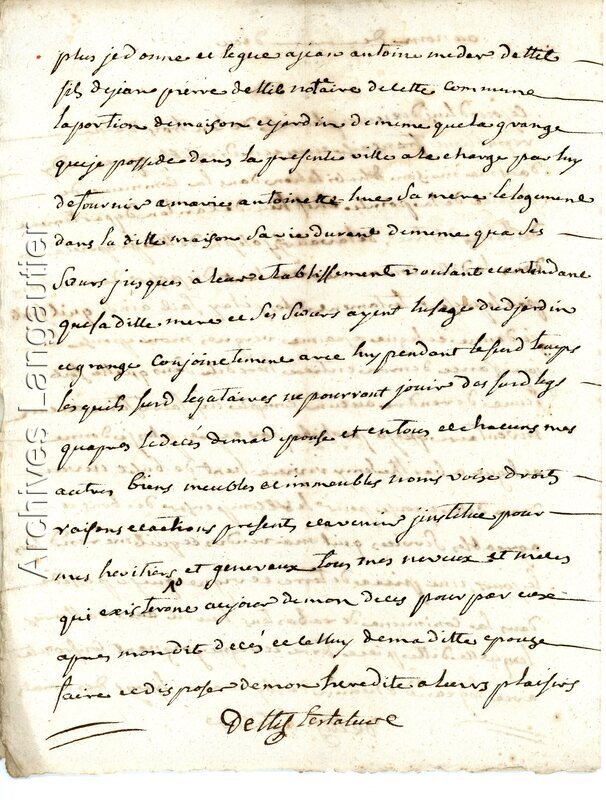 plus je donne et legue a jean antoine medar dettil
fils de jean pierre dettil not.re de cette commune
la portion de maison et jardin de meme que la grange
que je possede dans la presente ville a la charge par luy
de fournir a marie antoinette hue sa mere le logement
dans la ditte maison sa vie durent de meme qua ses
sœurs jusques a leur etablissement voulant et entendant
que sa ditte mere et ses sœurs ayent lusage dud jardin
et grange conjointement avec luy pendant le surd temps
lesquels surd legataires ne pourront jouir das surd legs
quapres le decés de mad epouse et en tous et chacuns mes
autres biens meubles et immeubles noms voise droits
raisons et actions presents et avenir jinstitue pour
mes heritiers et generaux tous mes neveux et nieces
qui existeront au jour de mon deces pour par eux
apres mon dit decés et celluy de ma ditte epouze
faire et disposer de mon heredite a leurs plaisirs
testature
Archives Langautier